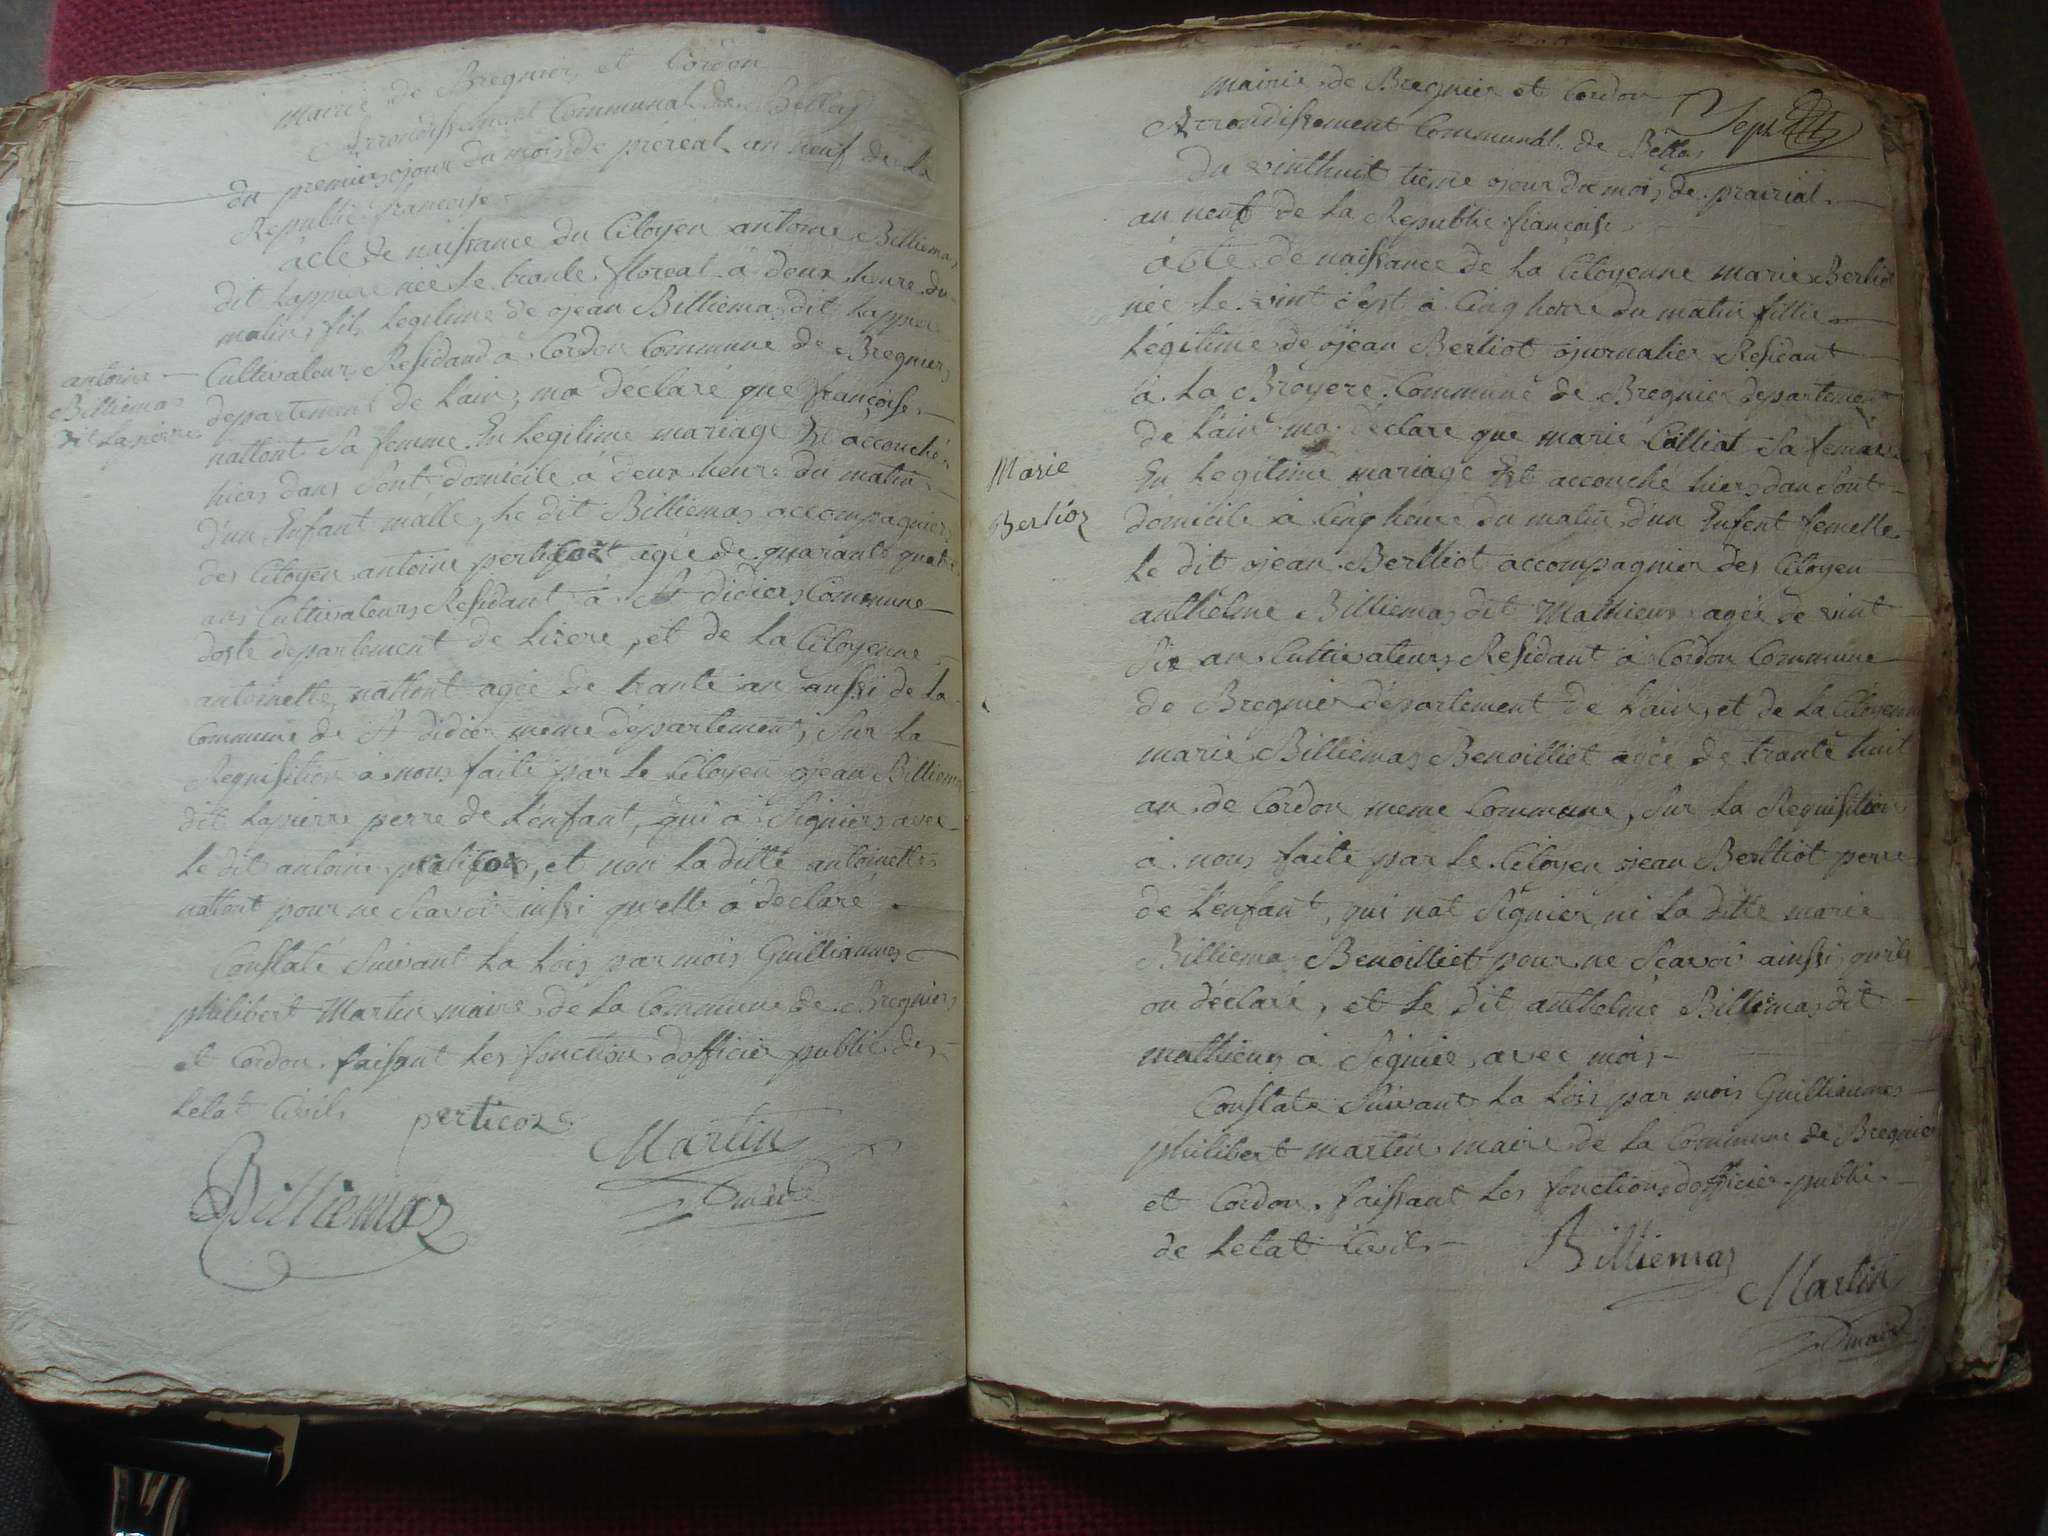 Mairie de Bregnier et Cordon
Arrondissement Communal de Belley
du premiers jour du mois de prereal an neuf de la
Republic françoise
acte de naissance du Citoyen antoine Billiemas
dit Lapierre née le trante floreal à deux heure du
matin, fil legitime de jean Billiemas dit Lappierre
Cultivateurs Residand à Cordon Commune de Bregniers
departement de Lain, ma déclaré que françoise
nattont sa femme En Legitime mariage Est accouché
hiers dans sont domicile à deux heure du matin
d'un Enfant malle, Le dit Billiemas accompagniers
des Citoyen antoine perticoz agée de quarante quatre
ans Cultivateurs Residant à St didiers Commune
doste departement de Lisere, et de La Citoyenne
antoinette nattont agée de trante an aussi de La
Commune de St didier meme departement, Sur La
Requisition à nous faite par Le Citoyen jean Billiemas
dit Lapierre perre de Lenfant, qui à Signiers avec
Le dit antoine perticoz, et non La ditte antoinette
nattont pour ne Scavoir inssi qu'elle à declaré
Constaté Suivant La Lois par mois Guilliaumes
philibert Martin maire de La Commune de Bregniers
et Cordon faisant Les fonction dofficier public de
Letat Civils
perticoz
Martin
maire
Billiemaz
antoine
Billiemas
dit Lapierre
mairie de Bregnier et Cordon
Arrondissement Communal de Belley
Du vinthuit tieme jour du mois de prairial
an neuf de La Republic françoise
acte de naissance de La Citoyenne marie Berliot
née Le vint sept à Cinq heure du matin fillie
Légitime de jean Berliot journalier Residant
à La Bróyere Commune de Bregnier departement
de Lain ma déclare que marie Calliat Sa femme
En Legitime mariage Est accouché hiers dan Sont
domicile à Cinq heure du matin d'un Enfent femelle
Le dit jean Berlliot accompagnier des Citoyen
anthelme Billiemas dit Mathieux agée de vint
Six an Cultivateurs Residant à Cordon Commune
de Bregnier département de Lain, et de La Citoyenne
marie Billiemas Benoilliet agée de trante huit
an de Cordon meme Commune, Sur La Requisition
à nous faite par Le Citoyen jean Berlliot perre
de Lenfant, qui nat Signier ni La ditte marie
Billiemas Benoilliet pour ne Scavoir ainssi quils
on déclaré, et Le dit anthelme Billiemas dit
mathieux à Signie avec mois
Constaté Suivant La Lois par mois Guilliaumes
philibert martin maire de La Commune de Bregnier
et Cordon faissant Les fonctions dofficier public
de Letat Civils
Billiemaz
Martin
maire
Marie
Berlioz